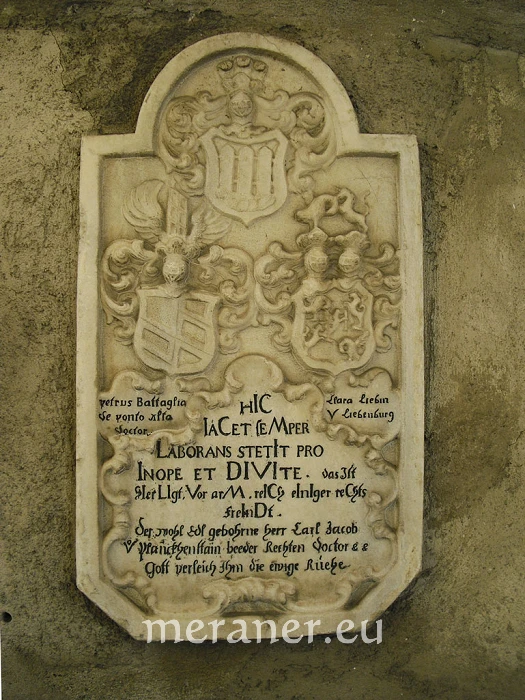 petrus Battaglia
de ponto Alta
Doctor.
Clara Liebin
V Liebenburg
HIC
IACET SEMPER
LABORANS STETIT PRO
INOPE ET DIVITE. das Ist
HIer LIgt, Vor arM. reICh eInIger reChts
freInDt.
Der wohl Edl gebohrne herr Carl Jacob
V Planckhenstain beeder Rechten Doctor & &
Gott verleich Ihm die ewige Ruehe
meraner.eu